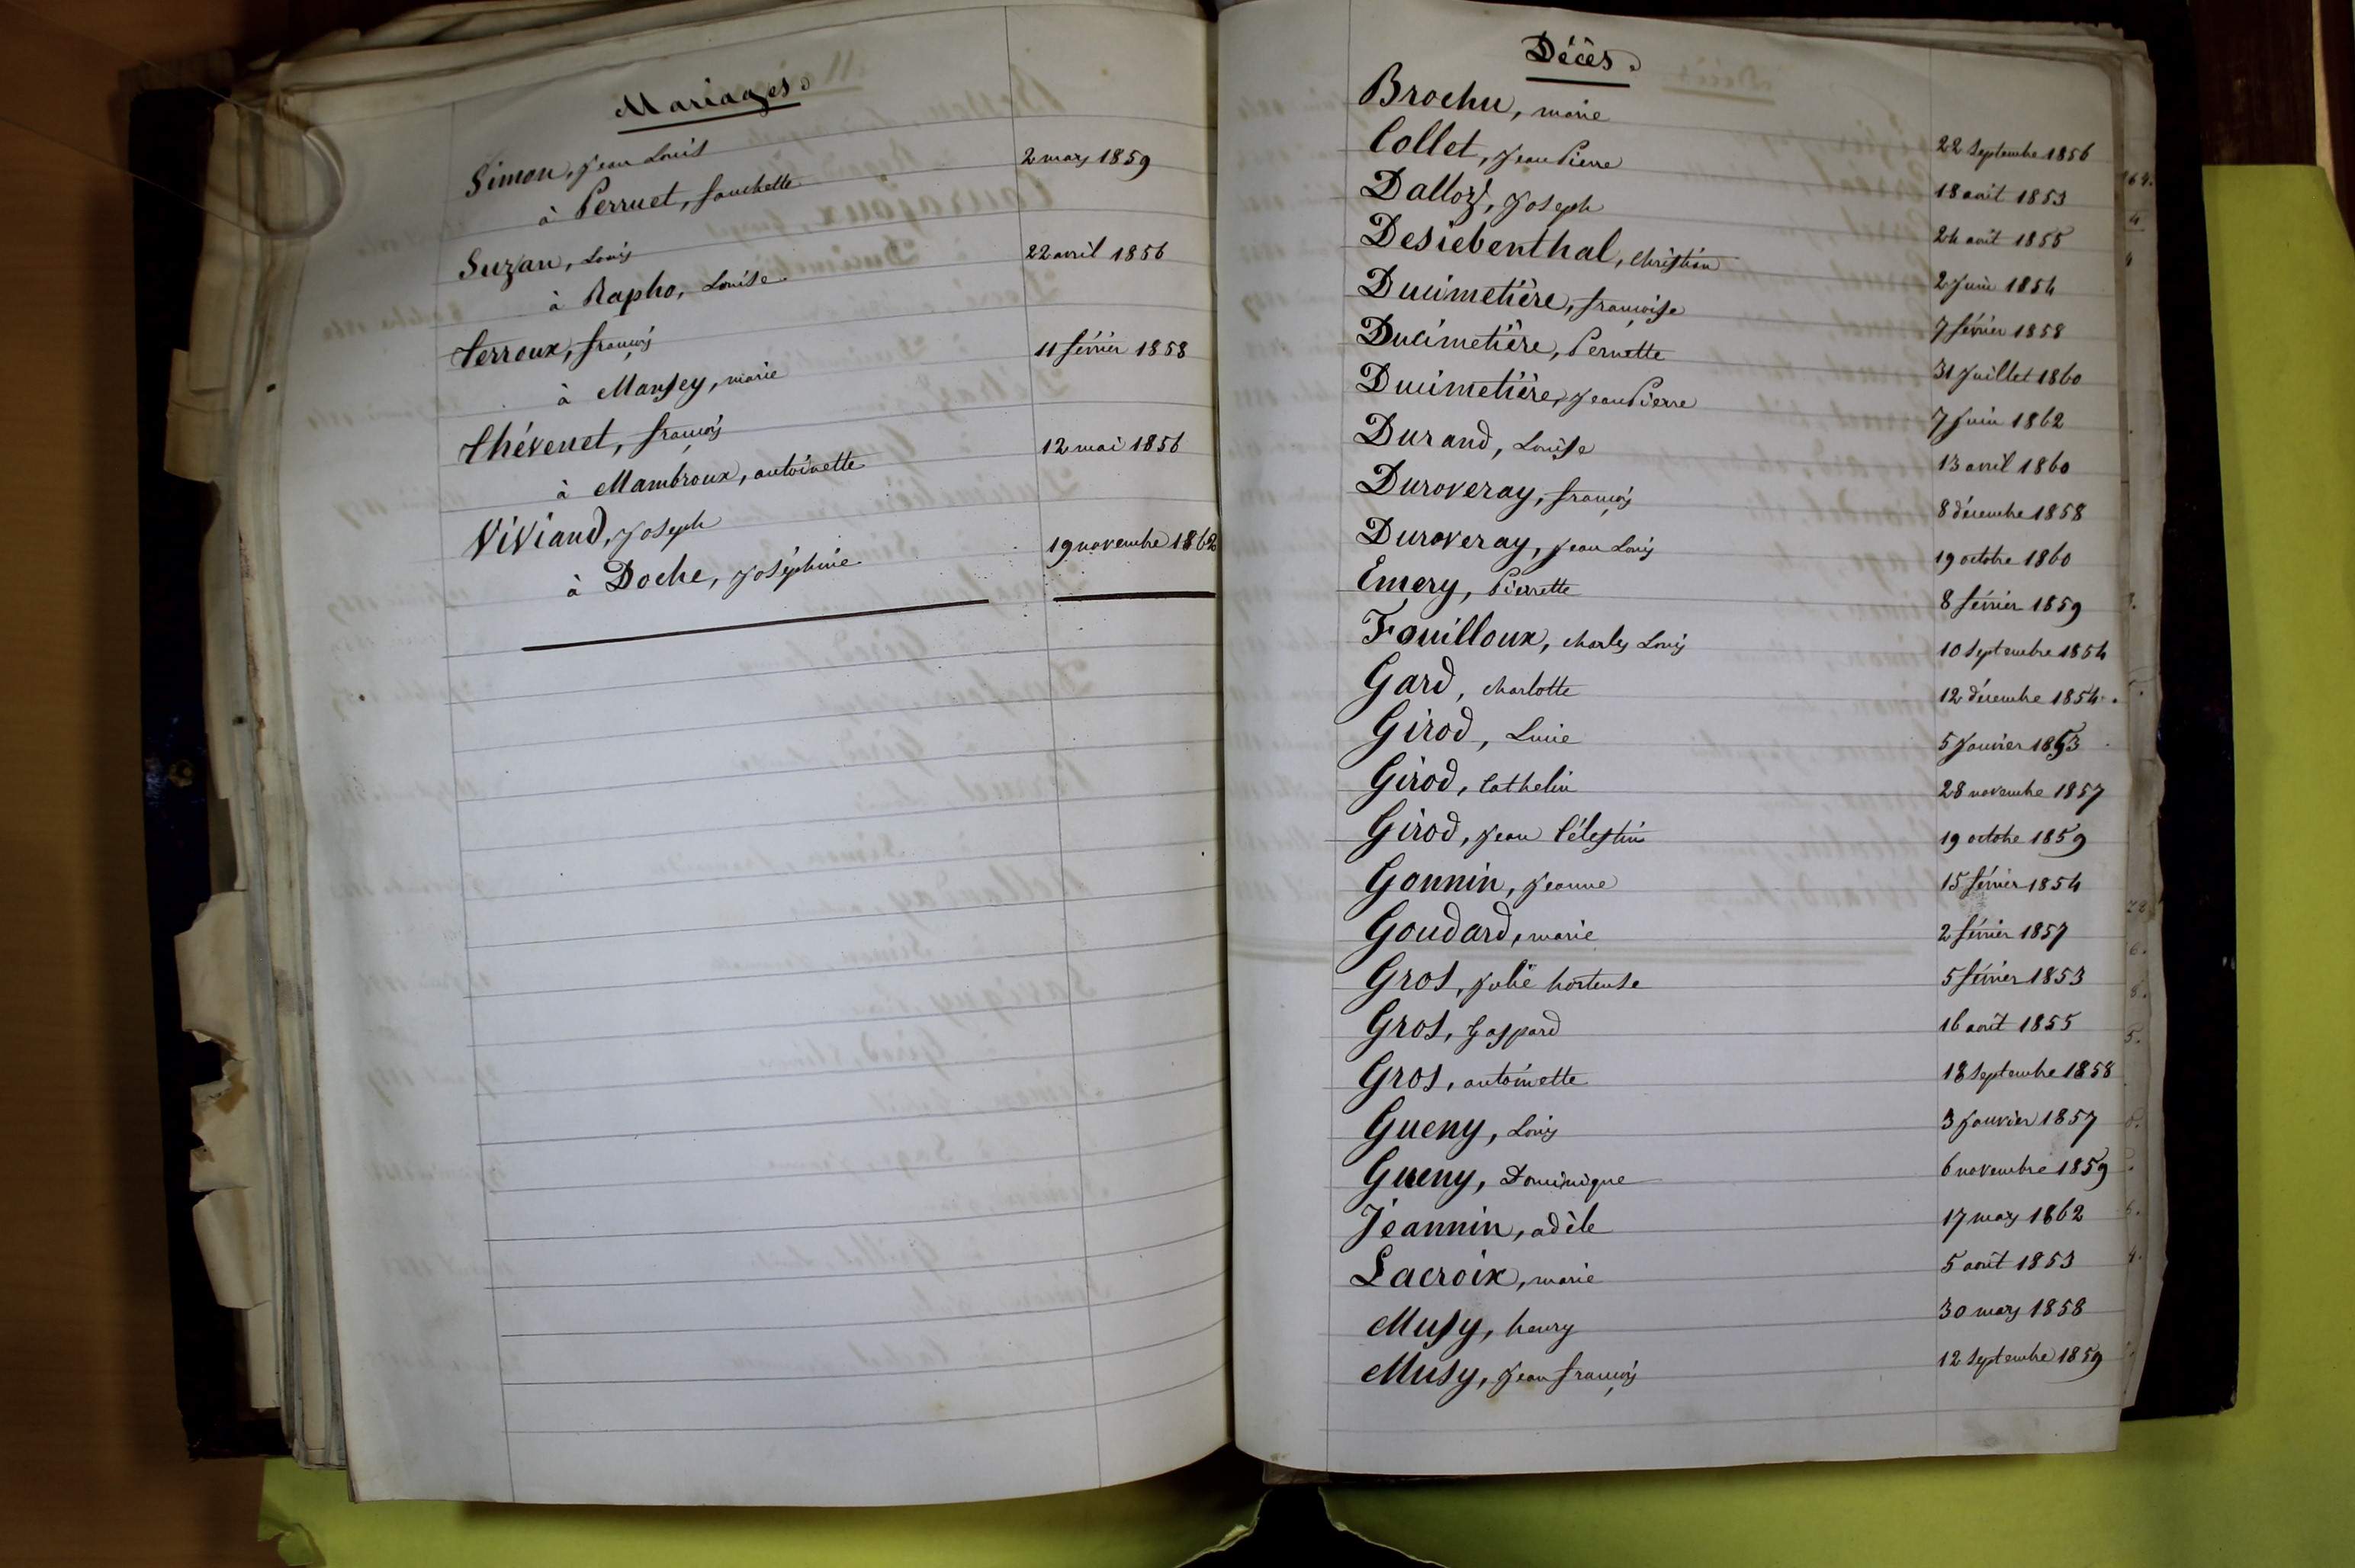 Mariages.
Simon, Jean Louis 2 mars 1859
à Perruet, fanchette
Suzan, Louis 22 avril 1856
à Rapho, Louise
Terroux, françois 11 février 1858
à Mansey, marie
Thévenet, françois 12 mai 1856
à Mambroux, antoinette
Viviand, Joseph 19 novembre 1862
à Doche, Joséphine
Décès.
Brochu, marie 22 septembre 1856
Collet, Jean Pierre 18 août 1853
Dalloz, Joseph 24 août 1855
Desiebenthal, Christian 2 Juin 1854
Ducimetière, françoise 7 février 1858
Ducimetière, Pernette 31 Juillet 1860
Ducimetière, Jean Pierre 7 Juin 1862
Durand, Louise 13 avril 1860
Duroveray, françois 8 décembre 1858
Duroveray, Jean Louis 19 octobre 1860
Emery, Pierrette 8 février 1859
Fouilloux, charles Louis 10 septembre 1854
Gard, charlotte 12 décembre 1854
Girod, Lucie 5 Janvier 1853
Girod, Cathelin 28 novembre 1857
Girod, Jean Célestin 19 octobre 1859
Gonnin, Jeanne 15 février 1854
Goudard, marie 2 février 1857
Gros, Julie hortense 5 février 1853
Gros, Gaspard 16 août 1855
Gros, antoinette 18 septembre 1858
Gueny, Louis 3 Janvier 1857
Gueny, Dominique 6 novembre 1859
Jeannin, adèle 17 mars 1862
Lacroix, marie 5 août 1853
Musy, henry 30 mars 1858
Musy, Jean françois 12 septembre 1859